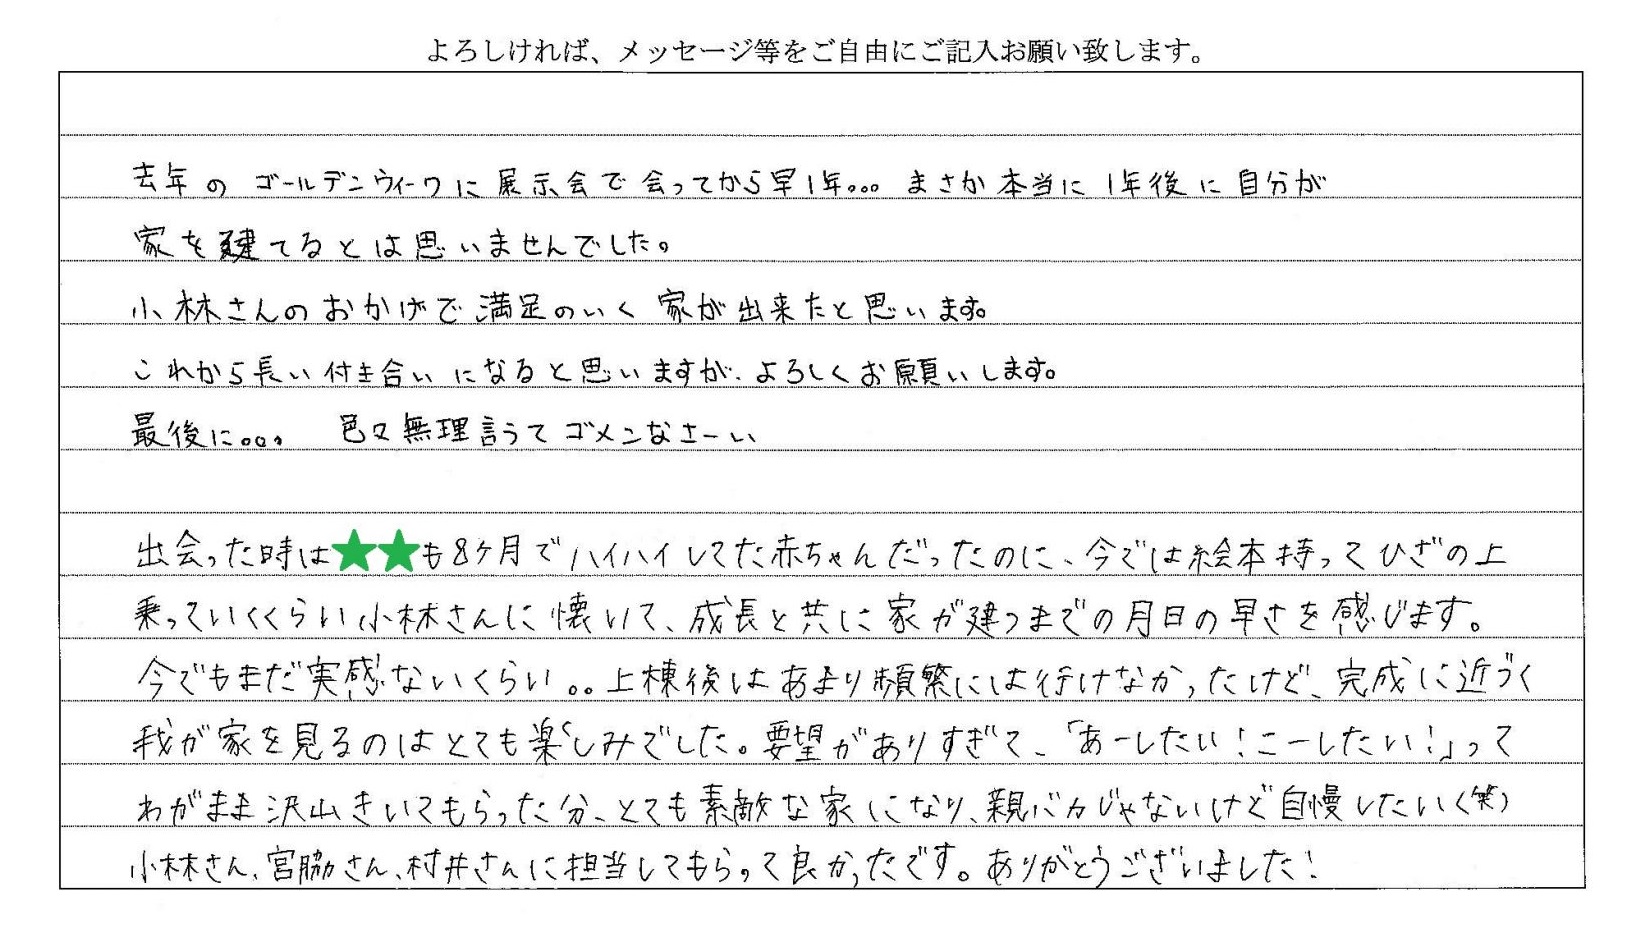 よろしければ、メッセージ等をご自由にご記入お願い致します。
去年の ゴールデンウィークに 展示会で 会ってから早1年... まさか 本当に 1年後に 自分が
家を建てるとは思いませんでした。
小林さんのおかげで 満足のいく 家が出来たと思います。
これから長い付き合いになると思いますが、よろしくお願いします。
最後に... 色々無理言うてゴメンなさーい
出会った時は★★も8ヶ月でハイハイしてた赤ちゃんだったのに、今では絵本持ってひざの上
乗っていくくらい小林さんに懐いて、成長と共に家が建つまでの月日の早さを感じます。
今でもまだ実感ないくらい..上棟後はあまり頻繁には行けなかったけど、完成に近づく
我が家を見るのはとても楽しみでした。要望がありすぎて、「あーしたい!こーしたい!」って
わがまま沢山きいてもらった分、とても素敵な家になり、親バカじゃないけど自慢したいく(笑)
小林さん、宮脇さん、村井さんに担当してもらって良かったです。ありがとうございました!